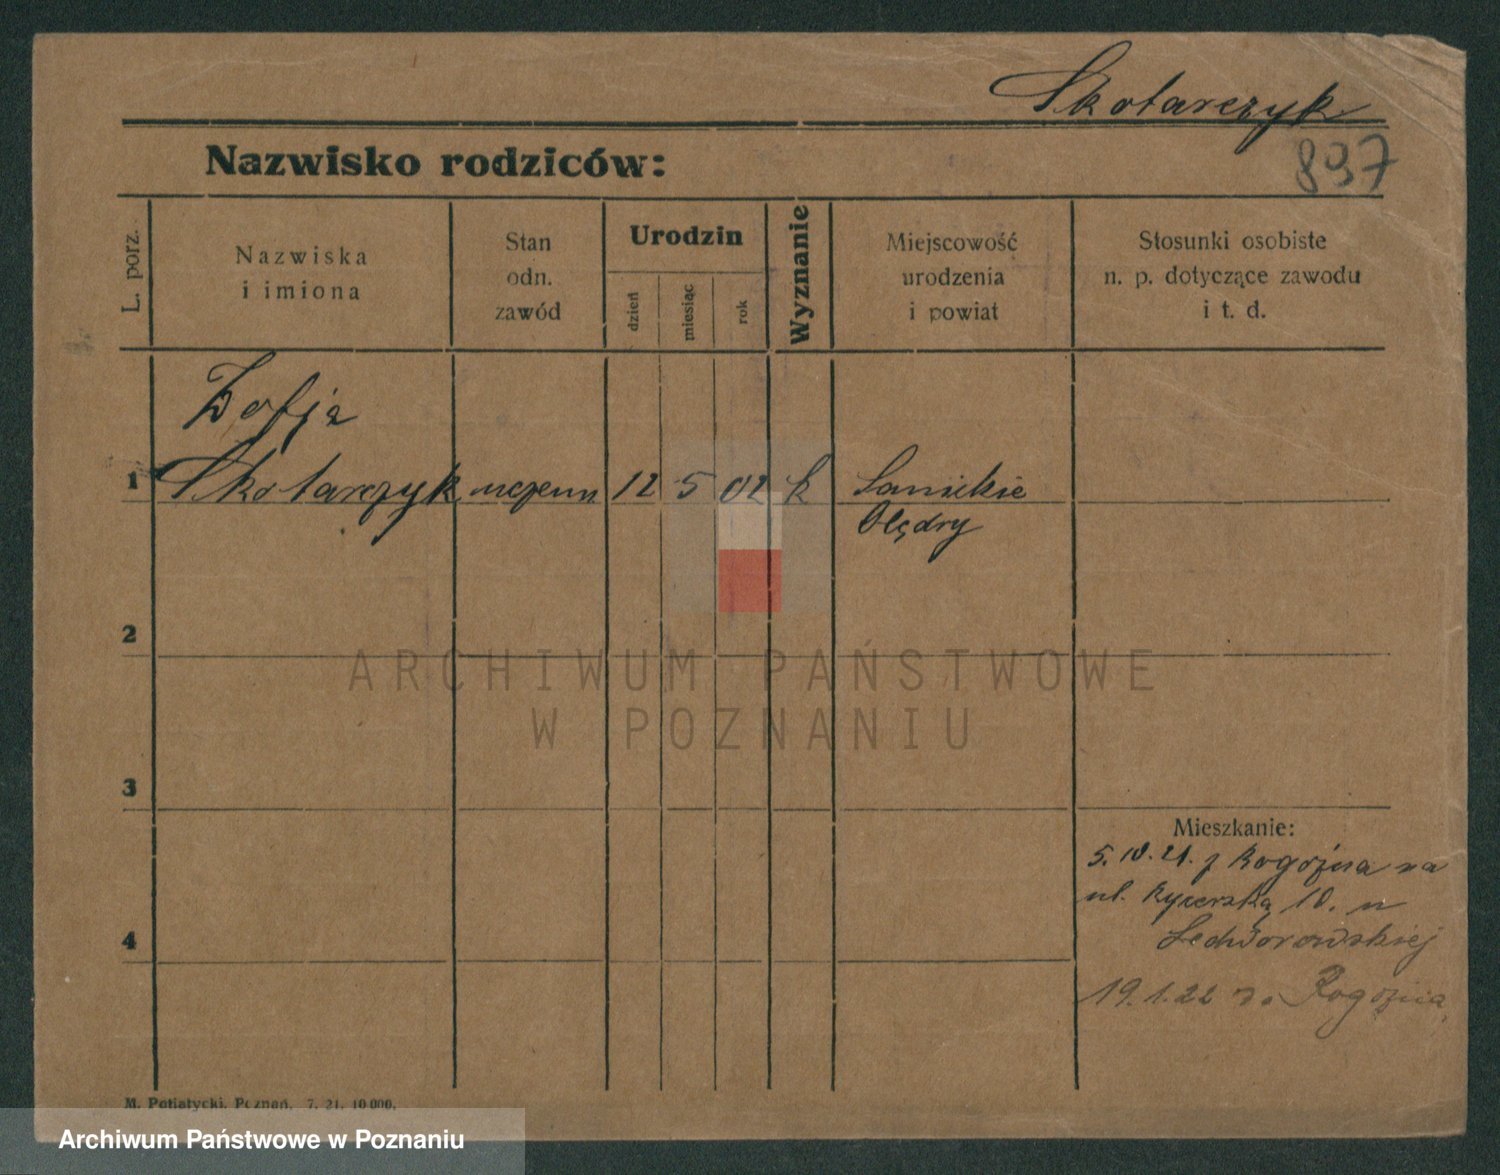 Skotarczyk
897
Nazwisko rodziców:
L. porz.
Nazwiska
i imiona
Stan
odn.
zawód
Urodzin
dzień
miesiąc
rok
Wyznanie
Miejscowość
urodzenia
i powiat
Stosunki osobiste
n. p. dotyczące zawodu
i t. d.
Zofja
1 Skotarczyk uczenn 12 5 02 k
Olędry
2
ARCHIWUM PAŃSTWOWE
W POZNANIU
3
Mieszkanie:
5.10.21. z Rogoźna na
ul. Rycerską 10. u
4
19.1.22 do Rogoźna
M. Potiatycki, Poznań, 7. 21. 10 000.
Archiwum Państwowe w Poznaniu